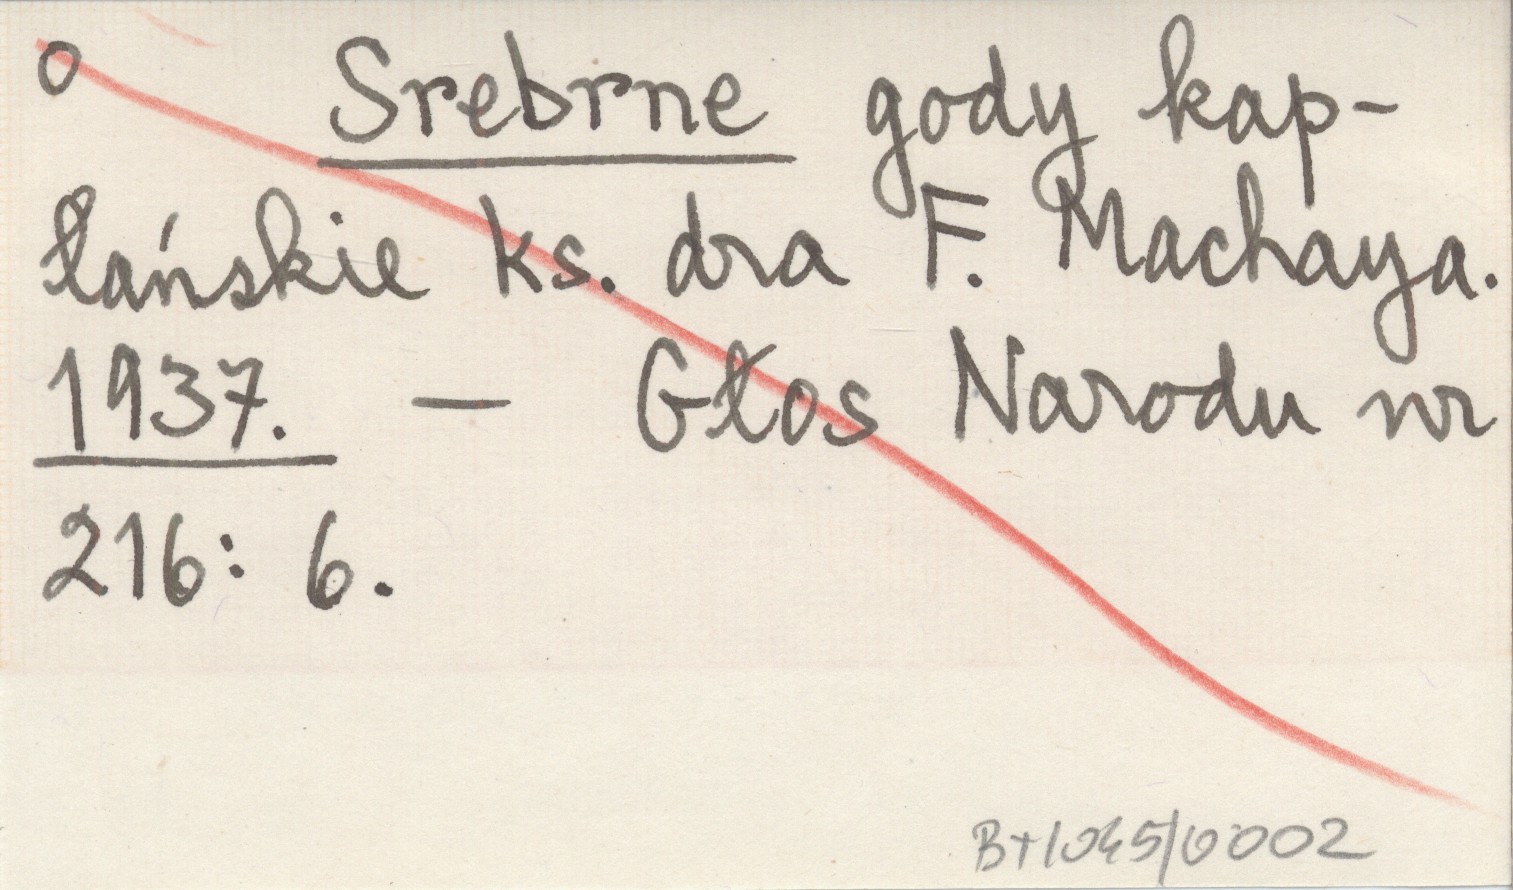 o Srebrne gody kap-
łańskie ks. dra F. Machaya.
1937. — Głos Narodu nr
216: 6.
BT/045/0002